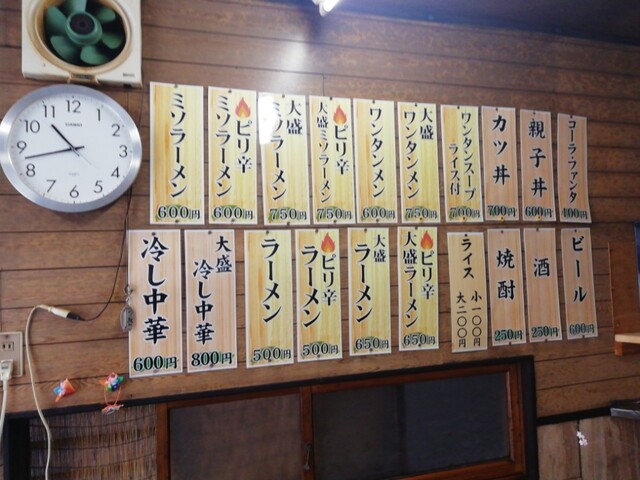 CASIO
12
1
2
3
4
5
6
7
8
9
10
11
ミソラーメン
600円
ピリ辛
ミソラーメン
600円
大盛
ミソラーメン
750円
ピリ辛
大盛ミソラーメン
750円
ワンタンメン
600円
大盛
ワンタンメン
750円
ワンタンスープ
ライス付
700円
カツ丼
700円
親子丼
600円
コーラ・ファンタ
100円
冷し中華
600円
大盛
冷し中華
800円
ラーメン
500円
ピリ辛
ラーメン
500円
大盛
ラーメン
650円
ピリ辛
大盛ラーメン
650円
ライス
小一〇〇円
大二〇〇円
焼酎
250円
酒
250円
ビール
600円